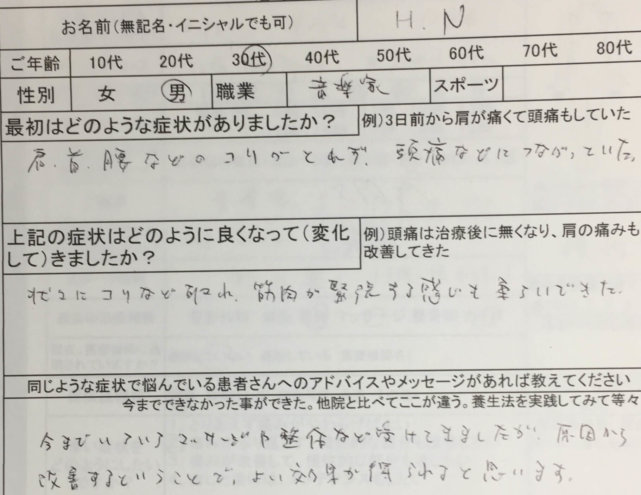 お名前(無記名・イニシャルでも可) H.N
ご年齢 10代 20代 30代 40代 50代 60代 70代 80代
性別 女 男 職業 音楽家 スポーツ
最初はどのような症状がありましたか? 例)3日前から肩が痛くて頭痛もしていた
肩、首、腰などのコリがとれず、頭痛などにつながっていた。
上記の症状はどのように良くなって(変化
して)きましたか?
例)頭痛は治療後に無くなり、肩の痛みも
改善してきた
状々にコリなど取れ、筋肉が緊張する感じも柔らいできた。
同じような症状で悩んでいる患者さんへのアドバイスやメッセージがあれば教えてください
今までできなかった事ができた。他院と比べてここが違う。養生法を実践してみて等々
今までいろいろマッサージや整体など受けてきましたが、原因から
改善するということで、よい効果が得られると思います。